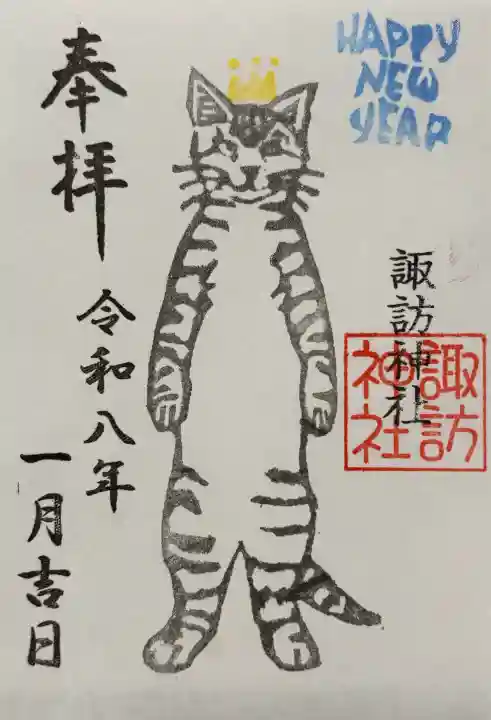 HAPPY
NEW
YEAR
諏訪神社
諏訪
神社
奉拝
令和八年
一月吉日